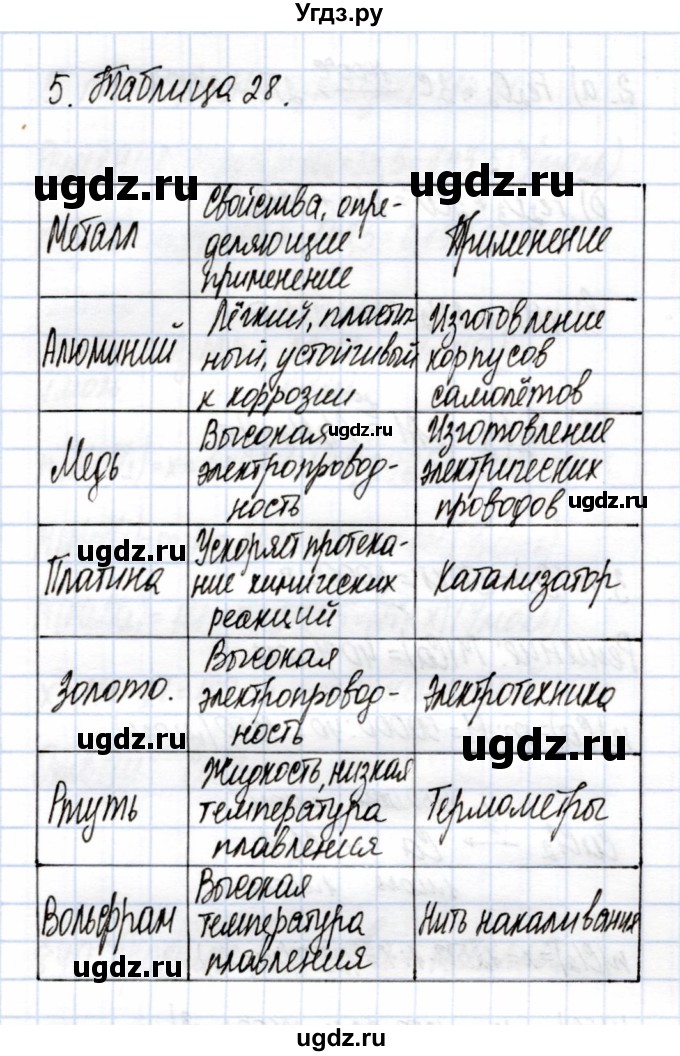 Угдз.ру
5. Таблица 28.
ugdz.ru ugdz.ru
Металл
Свойства, опре-
деляющие
применение
Применение
Алюминий
Лёгкий, пластич
ный, устойчивый
к коррозии
Изготовление
корпусов
самолётов
Медь
Высокая
электропровод-
ность
ugdz.ru
Изготовление
электрических
проводов
ugdz.ru
ugdz.ru
Платина
Ускоряет протека-
ние химических
реакций
Катализатор
Золото.
Высокая
электропровод-
ность
Электротехника
ugdz.ru
ugdz.ru
Ртуть
Жидкость, низкая
температура
плавления
Термометры
Вольфрам
Высокая
температура
плавления
Нить накаливания
ugdz.ru
ugdz.ru
ugdz.ru